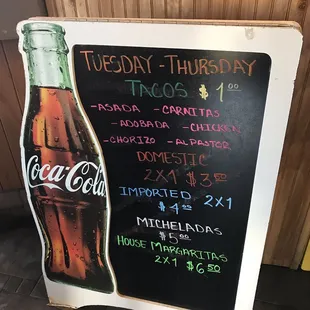 TUESDAY - THURSDAY
TACOS $1.00
-ASADA -CARNITAS
-ADOBADA -CHICKEN
-CHORIZO -AL PASTOR
DOMESTIC
2X1 $3.50
IMPORTED 2X1
$4.00
MICHELADAS
$5.00
HOUSE MARGARITAS
2X1 $6.50
Coca-Cola